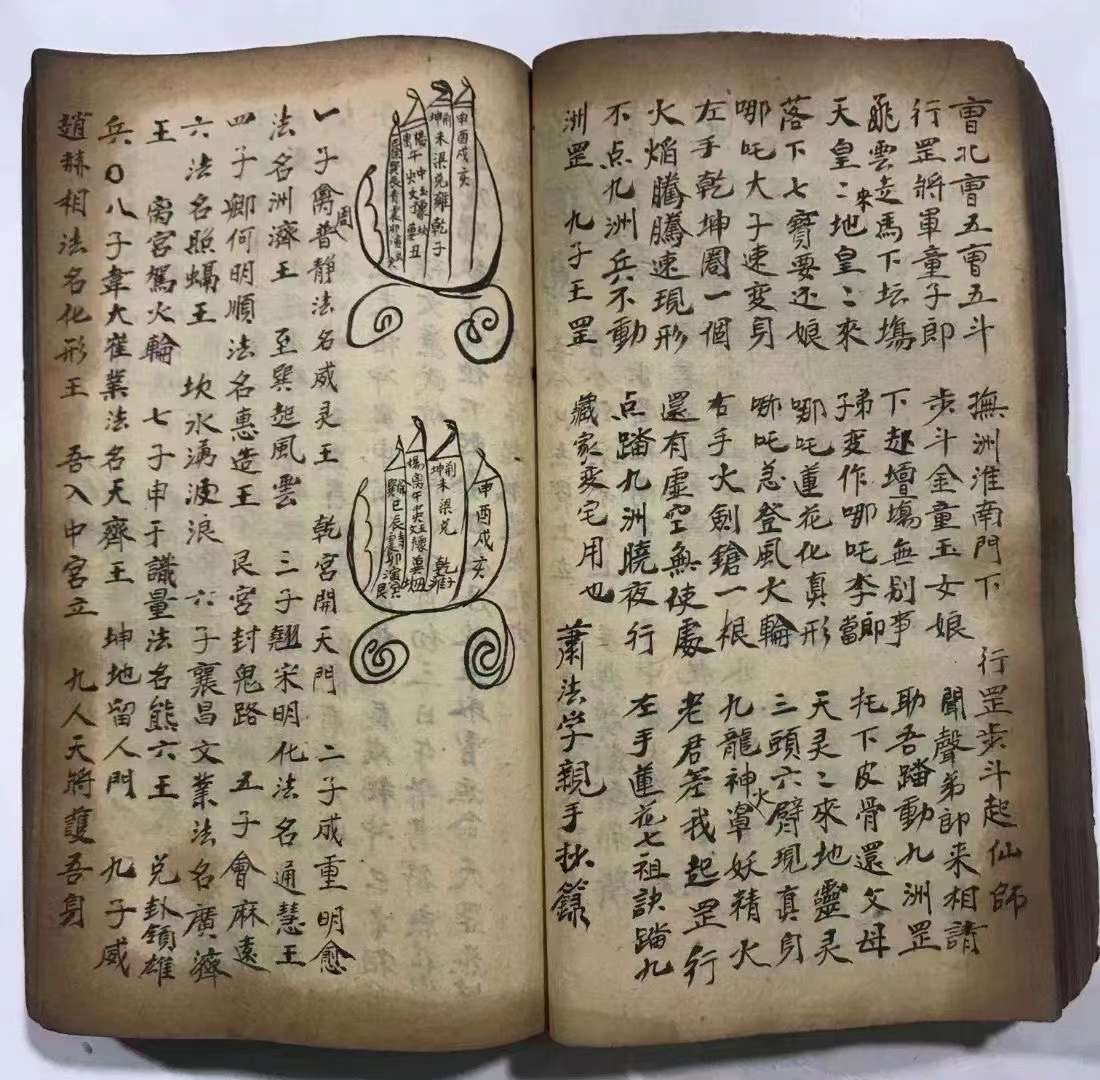 曺北曺五曺五斗 撫洲淮南門下 行罡步斗起仙師
行罡將軍童子郎 步斗金童玉女娘 聞聲弟郎来相請
飛雲走馬下坛塲 下赴壇塲無別事 助吾踏動九洲罡
天皇二來地皇二來 子弟变作哪吒李當郎 托下皮骨還父母
落下七寶要还娘 哪吒蓮花化真形 天灵二來地靈灵
哪吒大子速变身 哪吒急登風火輪 三頭六臂現真身
左手乾坤圈一個 右手火劍鎗一根 九龍神火罩妖精火
火焰騰騰速現形 還有虛空無使處 老君差我起罡行
不点九洲兵不動 点踏九洲曉夜行 左手蓮花七祖訣踏九
洲罡 九子王罡 藏家变宅用也 蕭法学親手抄籙
申酉戌亥
坤未梁兑雍乾子
申酉戌亥
一子禽周普静法名威灵王 乾宮開天門 二子成重明愈
法名洲濟王 至巽起風雲 三子翹宋明化法名通慧王
四子卿何明順法名惠造王 艮宮封鬼路 五子會麻遠
六法名照蝎王 坎水湧波浪 六子襄昌文業法名廣濟
王 离宮駕火輪 七子申于識量法名熊六王 兑卦領雄
兵〇八子韋大崔業法名天齊王 坤地留人門 九子威
趙赫相法名化形王 吾入中宮立 九人天將護吾身